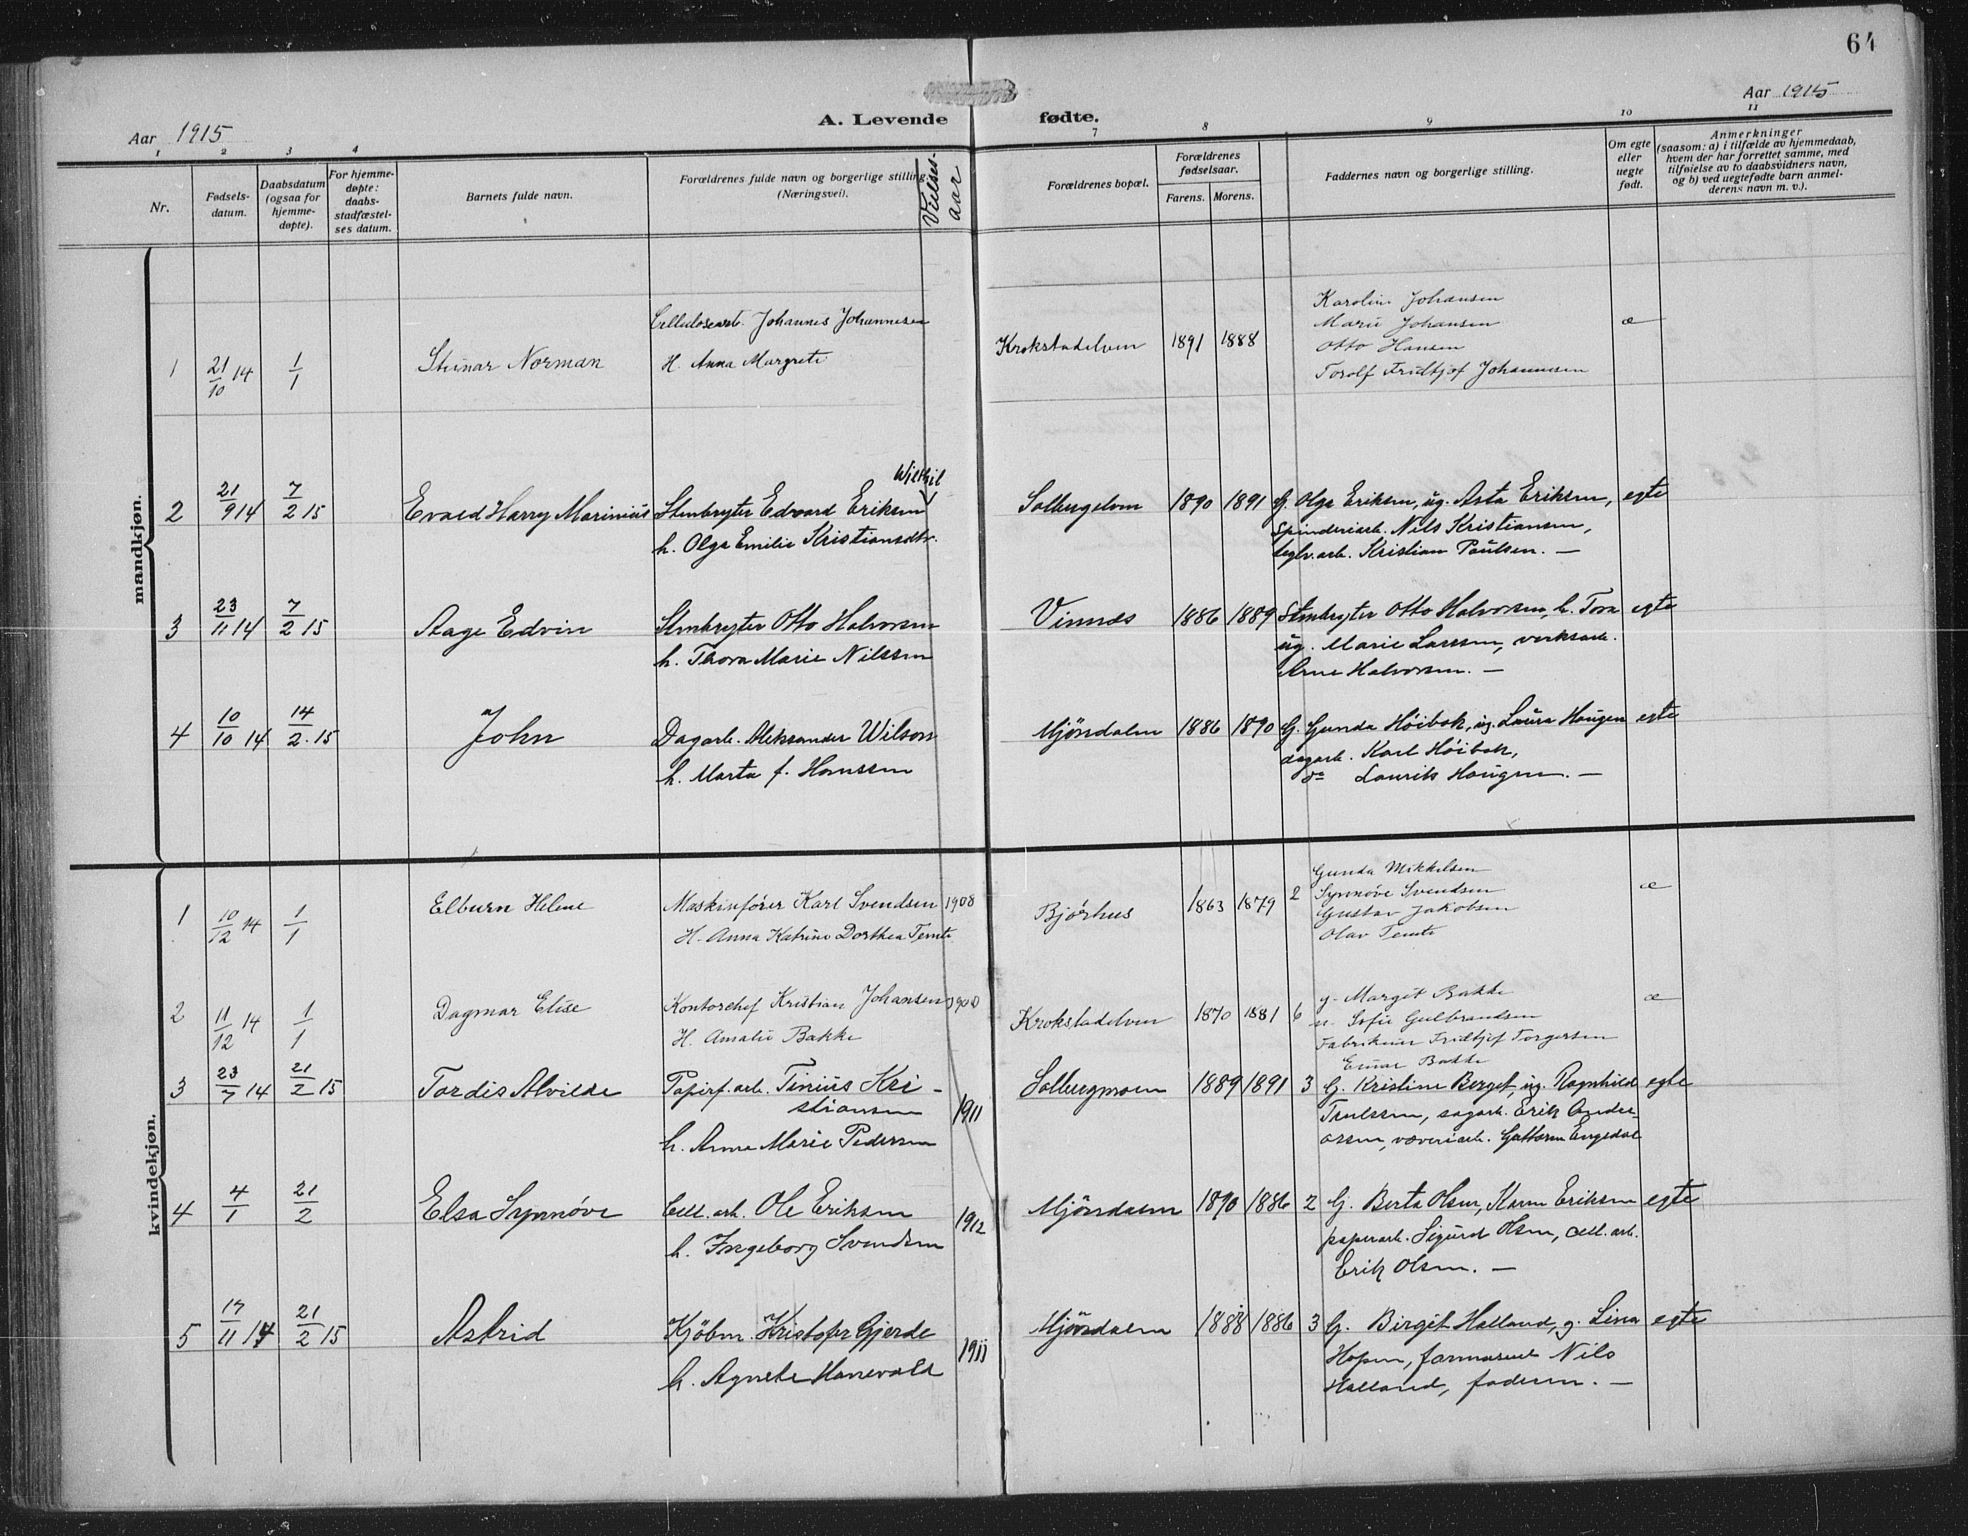 64
Aar 1915
A. Levende fødte.
Aar 1915
1 2 3 4 7 8 9 10 11
Nr.
Fødsels-
datum.
Daabsdatum
(ogsaa for
hjemme-
døpte).
For hjemme-
døpte:
daabs-
stadfæstel-
ses datum.
Barnets fulde navn.
Forældrenes fulde navn og borgerlige stilling
(Næringsvei).
Vielses-
aar
Forældrenes bopæl.
Forældrenes
fødselsaar.
Farens. Morens.
Faddernes navn og borgerlige stilling.
Om egte
eller
uegte
født.
Anmerkninger
(saasom: a) i tilfælde av hjemmedaab,
hvem der har forrettet samme, med
tilføielse av to daabsvidners navn,
og b) ved uegtefødte barn anmel-
derens navn m. v.).
mandkjøn.
1 21/10 14 1/1 Steinar Norman
Cellulosearb. Johannes Johannesen
H. Anna Margrete
Krokstadelven 1891 1888
Karoline Johansen
Marie Johansen
Otto Hansen
Torolf Fridtjof Johannesen
æ
2 21/9 14 7/2 15 Evald Harry Marinius
Stenbryter Edvard Eriksen
h. Olga Emilie Kristiansdtr.
Solbergelven 1890 1891
G. Olga Eriksen, ug. Asta Eriksen,
Spinderiarb. Nils Kristiansen,
teglv.arb. Kristian Paulsen. —
egte
3 23/11 14 7/2 15 Aage Edvin
Stenbryter Otto Halvorsen
h. Thora Marie Nilssen
Vinnes 1886 1889
Stenbryter Otto Halvorsen, h. Tora
ug. Marie Larssen, verksarb.
Arne Halvorsen. —
egte
4 10/10 14 14/2 15 John
Dagarb. Aleksander Wilson
h. Marta f. Hanssen
Mjöndalen 1886 1890
G. Gunda Höibak, ug. Laura Haugen
dagarb. Karl Höibak,
do Laurits Haugen. —
egte
kvindekjøn.
1 10/12 14 1/1 Elburn Helene
Maskinfører Karl Svendsen 1908
H. Anna Katrine Dorthea Temte
Bjørhus 1863 1879 2
Gunda Mikkelsen
Synnøve Svendsen
Gustav Jakobsen
Olav Temte
æ
2 11/12 14 1/1 Dagmar Elise
Kontorchef Kristian Johansen 1900
H. Amalie Bakke
Krokstadelven 1870 1881 6
g. Margit Bakke
u. Sofie Gulbrandsen
Fabrikeier Fridtjof Torgersen
Einar Bakke
æ
3 23/7 14 21/2 15 Tordis Alvilde
Papirf.arb. Tinius Kri-
stiansen 1911
h. Anna Marie Pedersen
Solbergmoen 1889 1891 3
G. Kristine Berget, ug. Ragnhild
Trulssen, sagarb. Erik Ander-
ossen, væveriarb. Guttorm Engedal
egte
4 4/1 21/2 Elsa Synnöve
Cell. arb. Ole Eriksen 1912
h. Ingeborg Svendsen
Mjöndalen 1890 1886 2
G. Berta Olsen, Karen Eriksen
papirarb. Sigurd Olsen, cell. arb.
Erik Olsen. —
egte
5 17/11 14 21/2 15 Astrid
Kjöbm. Kristofer Gjerde 1911
h. Agnete Hanevold
Mjöndalen 1888 1886 3
G. Birgit Halland, g. Lina
Hopen, farmaseut Nils
Halland, faderen. —
egte